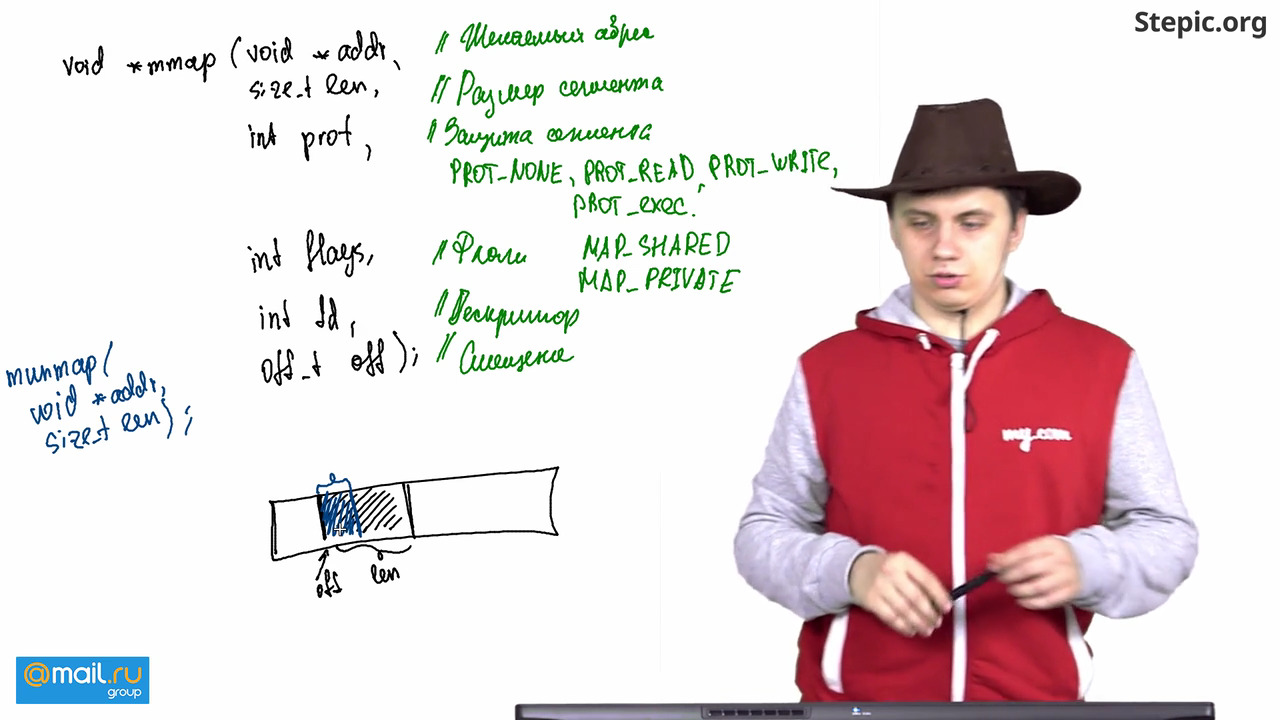 Stepic.org
void *mmap (void *addr, // Желаемый адрес
size_t len, // Размер сегмента
int prot, // Защита сегмента
PROT_NONE, PROT_READ, PROT_WRITE,
PROT_exec.
int flags, // Флаги MAP_SHARED
MAP_PRIVATE
int fd, // Дескриптор
off_t off); // Смещение
munmap(
void *addr,
size_t len);
off len
my.com
@mail.ru
group